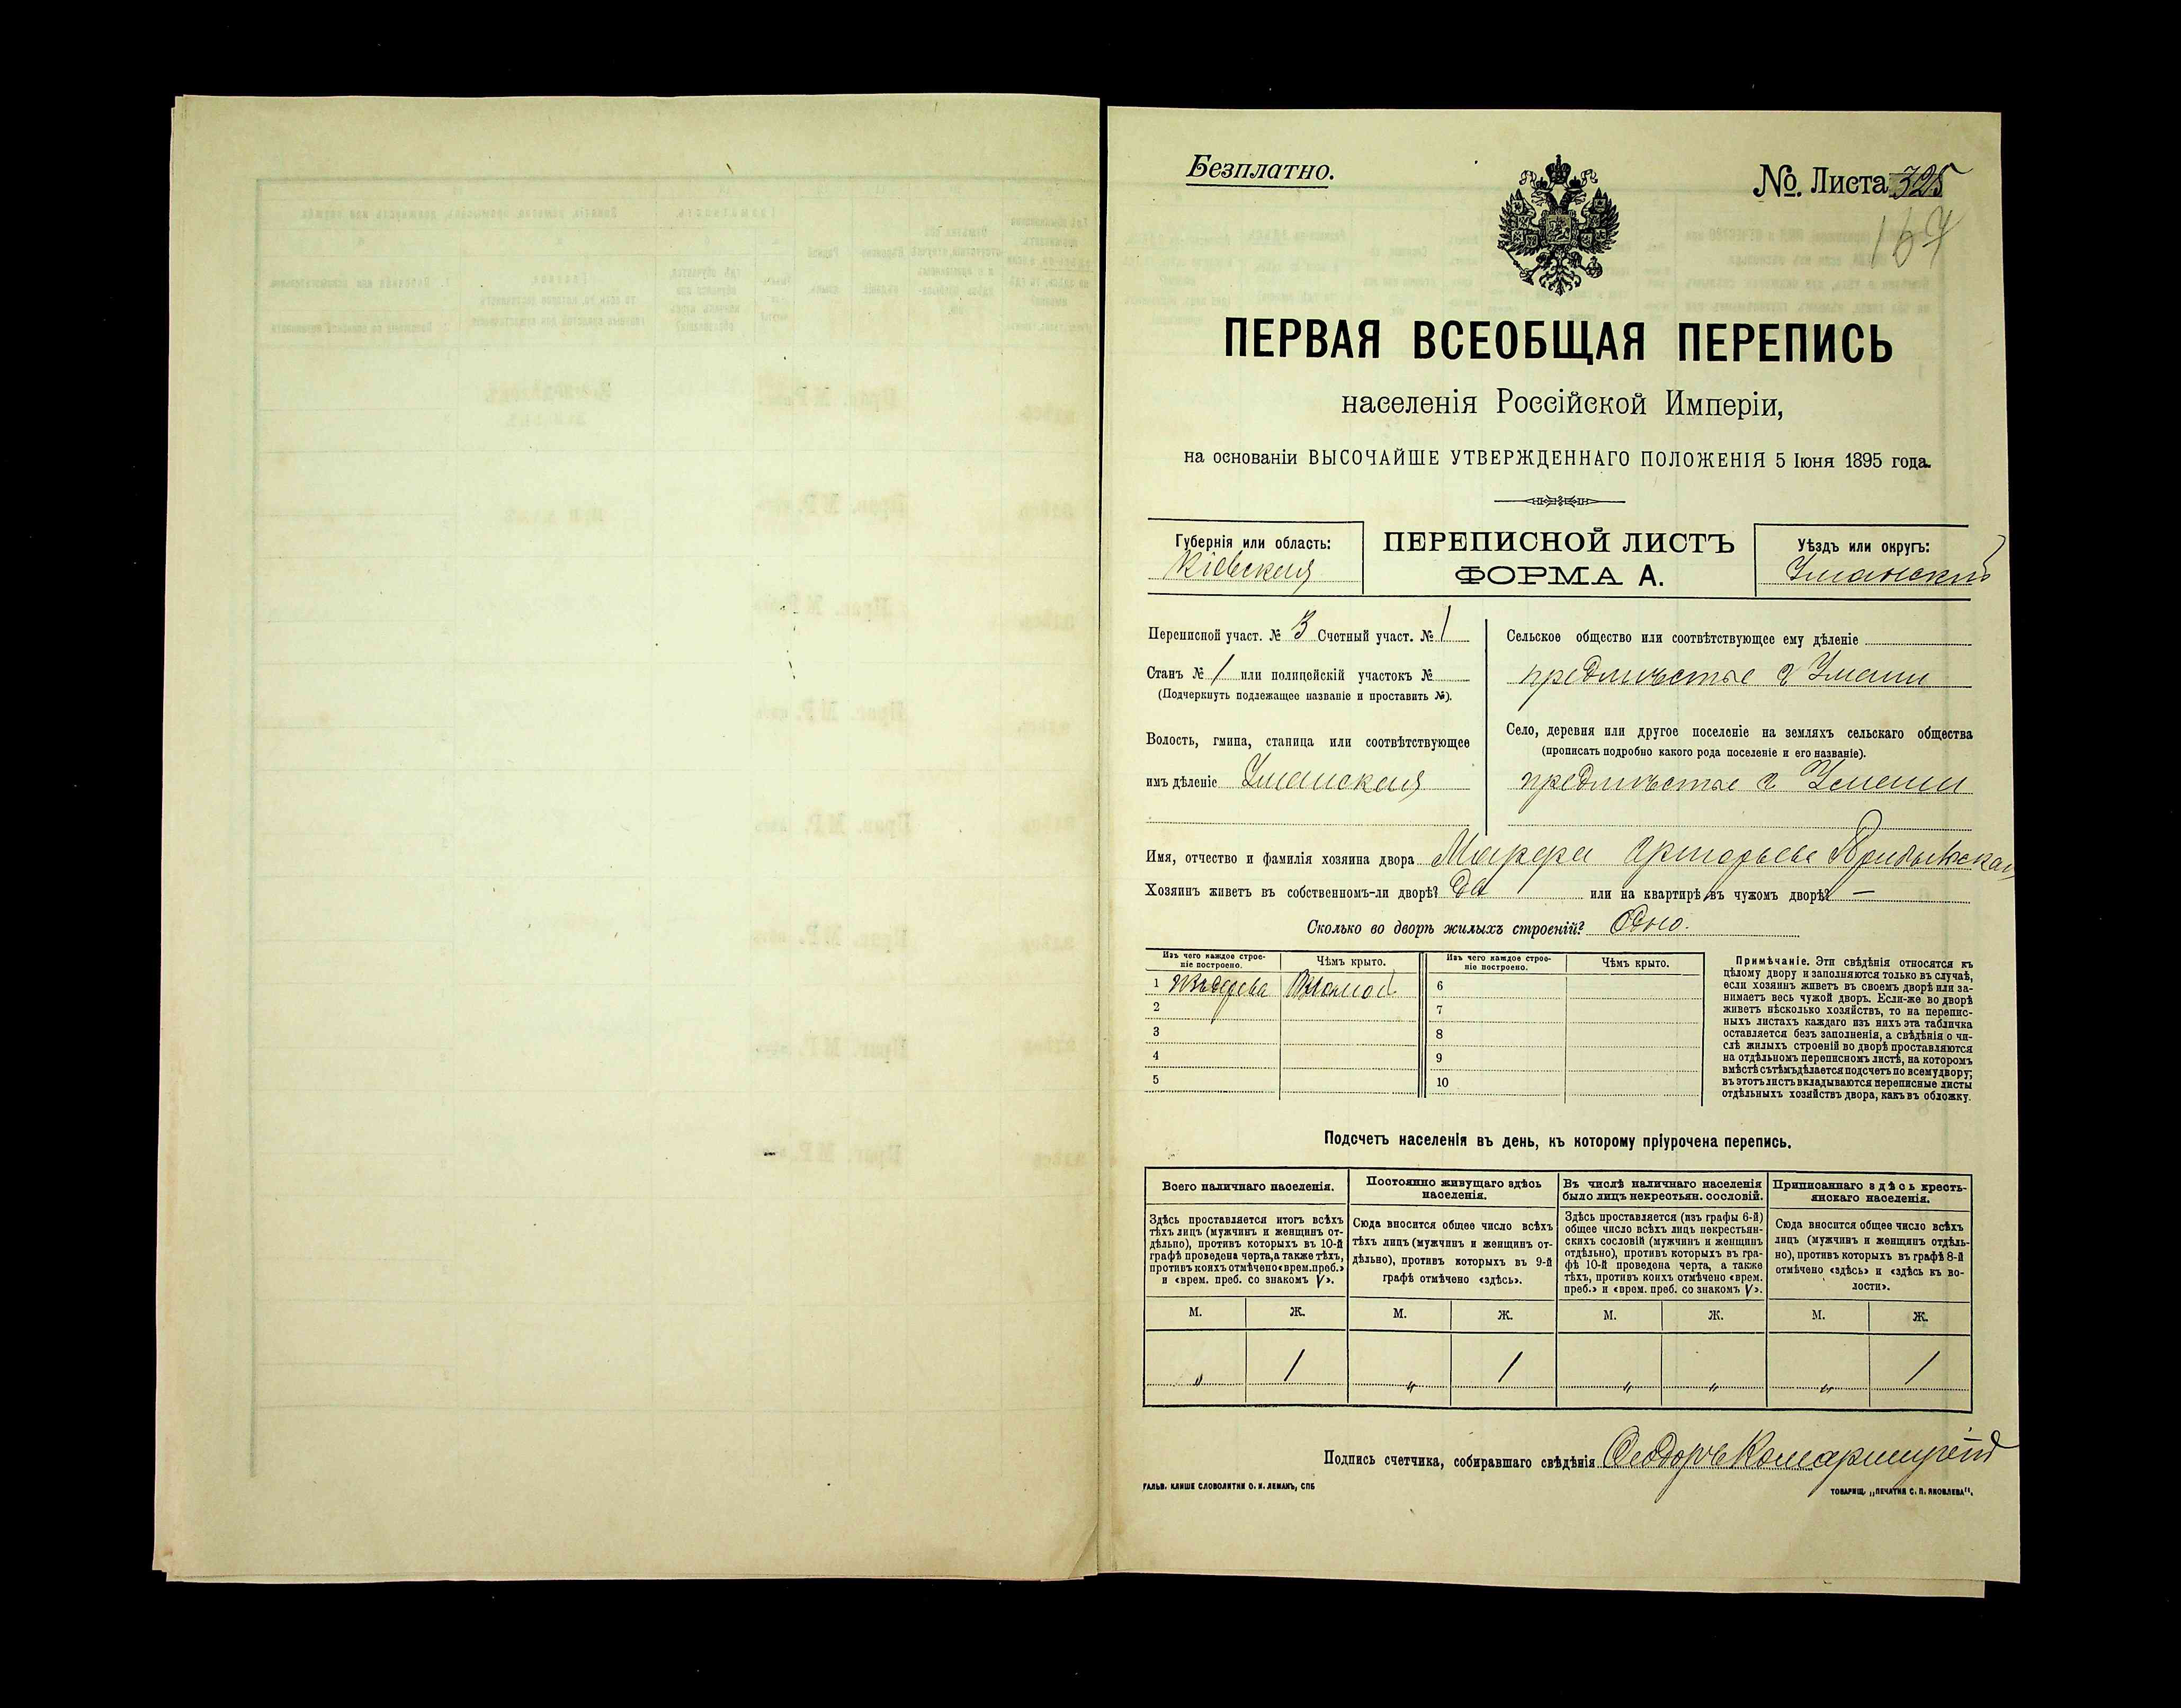 Безплатно.
№. Листа 325
167
ПЕРВАЯ ВСЕОБЩАЯ ПЕРЕПИСЬ
населенія Россійской Имперіи,
на основаніи ВЫСОЧАЙШЕ УТВЕРЖДЕННАГО ПОЛОЖЕНІЯ 5 Іюня 1895 года.
Губернія или область:
Кіевская
ПЕРЕПИСНОЙ ЛИСТЪ
ФОРМА А.
Уѣздъ или округъ:
Уманскій
Переписной участ. № 3 Счетный участ. № 1
Станъ № 1 или полицейскій участокъ №
(Подчеркнуть подлежащее названіе и проставить №).
Волость, гмина, станица или соотвѣтствующее
имъ дѣленіе Уманская
Сельское общество или соотвѣтствующее ему дѣленіе
предмѣстье г Умани
Село, деревня или другое поселеніе на земляхъ сельскаго общества
(прописать подробно какого рода поселеніе и его названіе).
предмѣстье г Умани
Имя, отчество и фамилія хозяина двора
Хозяинъ живетъ въ собственномъ-ли дворѣ? Да или на квартирѣ, въ чужомъ дворѣ? —
Сколько во дворѣ жилыхъ строеній? Одно.
Изъ чего каждое строе-
ніе построено.
Чѣмъ крыто.
Изъ чего каждое строе-
ніе построено.
Чѣмъ крыто.
1 Изъ дерева
6
2
7
3
8
4
9
5
10
Примѣчаніе. Эти свѣдѣнія относятся къ
цѣлому двору и заполняются только въ случаѣ,
если хозяинъ живетъ въ своемъ дворѣ или за-
нимаетъ весь чужой дворъ. Если-же во дворѣ
живетъ нѣсколько хозяйствъ, то на перепис-
ныхъ листахъ каждаго изъ нихъ эта табличка
оставляется безъ заполненія, а свѣдѣнія о чи-
слѣ жилыхъ строеній во дворѣ проставляются
на отдѣльномъ переписномъ листѣ, на которомъ
вмѣстѣ съ тѣмъ дѣлается подсчетъ по всему двору;
въ этотъ листъ вкладываются переписные листы
отдѣльныхъ хозяйствъ двора, какъ въ обложку.
Подсчетъ населенія въ день, къ которому пріурочена перепись.
Всего наличнаго населенія.
Здѣсь проставляется итогъ всѣхъ
тѣхъ лицъ (мужчинъ и женщинъ от-
дѣльно), противъ которыхъ въ 10-й
графѣ проведена черта, а также тѣхъ,
противъ коихъ отмѣчено «врем. преб.»
и «врем. преб. со знакомъ V».
М. Ж.
" 1
Постоянно живущаго здѣсь
населенія.
Сюда вносится общее число всѣхъ
тѣхъ лицъ (мужчинъ и женщинъ от-
дѣльно), противъ которыхъ въ 9-й
графѣ отмѣчено «здѣсь».
М. Ж.
" 1
Въ числѣ наличнаго населенія
было лицъ некрестьян. сословій.
Здѣсь проставляется (изъ графы 6-й)
общее число всѣхъ лицъ некрестьян-
скихъ сословій (мужчинъ и женщинъ
отдѣльно), противъ которыхъ въ гра-
фѣ 10-й проведена черта, а также
тѣхъ, противъ коихъ отмѣчено «врем.
преб.» и «врем. преб. со знакомъ V».
М. Ж.
" "
Приписаннаго здѣсь кресть-
янскаго населенія.
Сюда вносится общее число всѣхъ
лицъ (мужчинъ и женщинъ отдѣль-
но), противъ которыхъ въ графѣ 8-й
отмѣчено «здѣсь» и «здѣсь къ во-
лости».
М. Ж.
" 1
Подпись счетчика, собиравшаго свѣдѣнія Ѳеодоръ Комарницкій
ГАЛЬВ. КЛИШЕ СЛОВОЛИТНИ О. И. ЛЕМАНЪ, СПБ
ТОВАРИЩ. „ПЕЧАТНЯ С. П. ЯКОВЛЕВА".